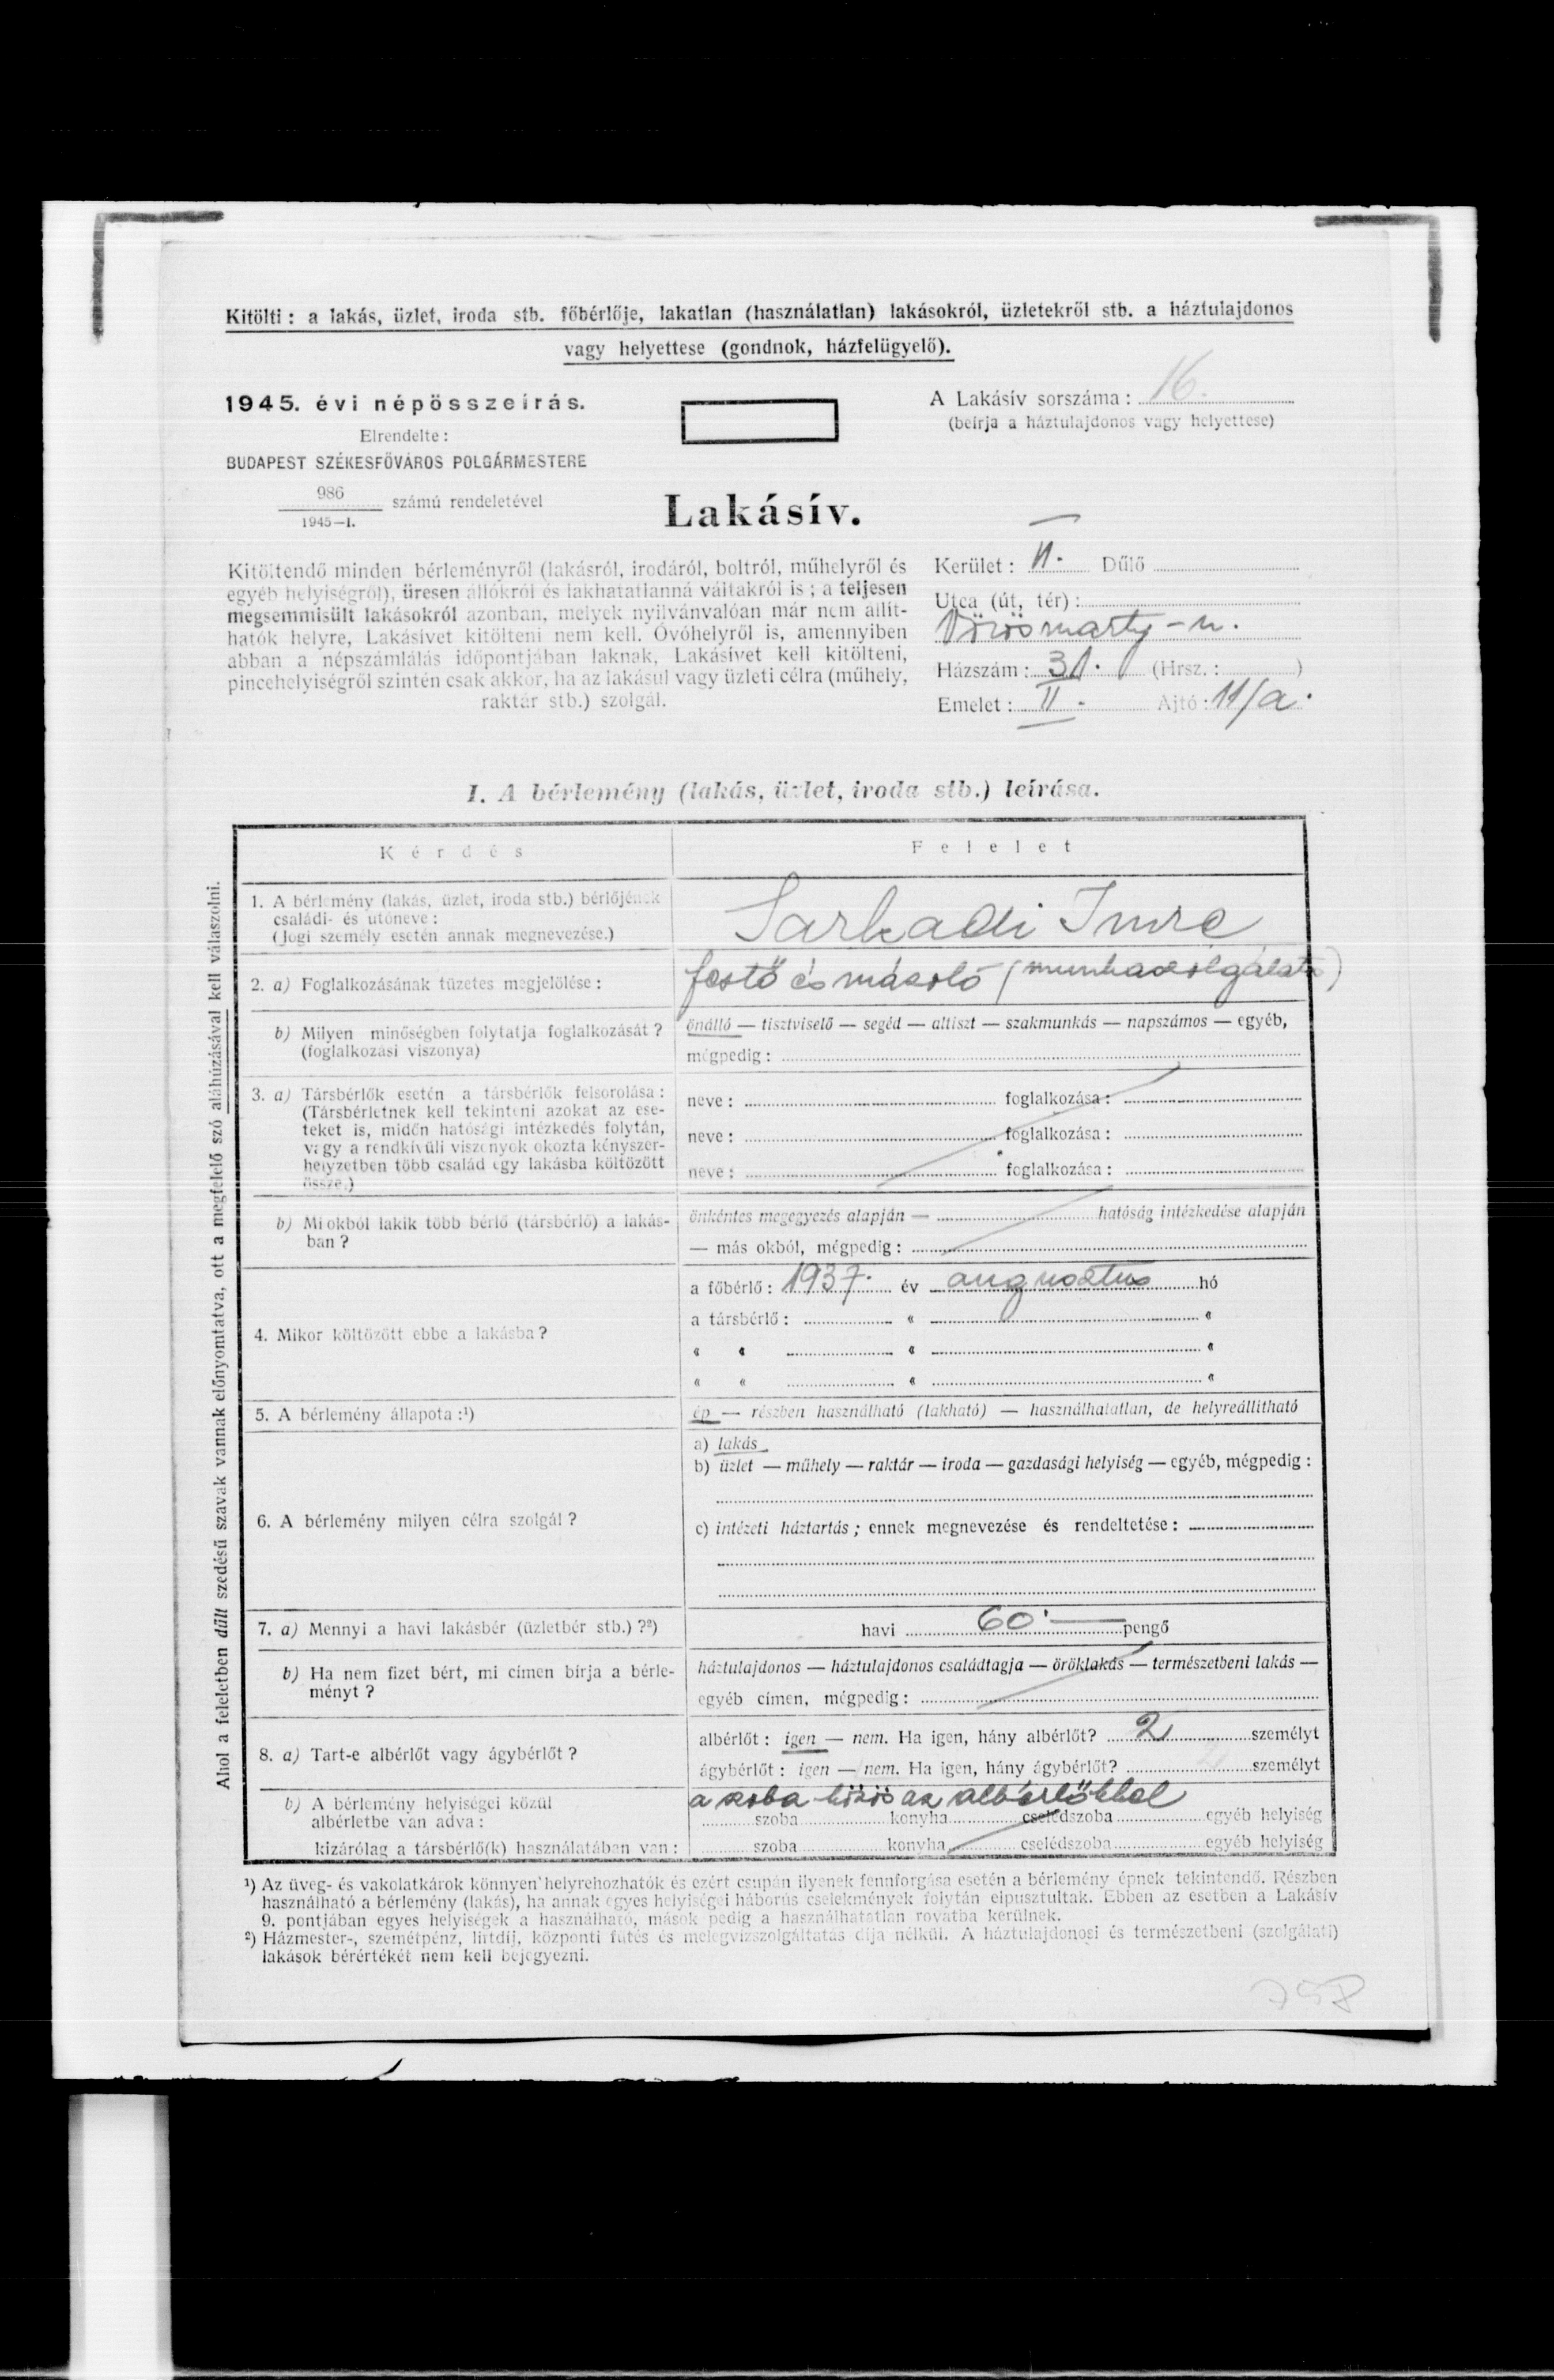 Kitölti : a lakás, üzlet, iroda stb. főbérlője, lakatlan (használatlan) lakásokról, üzletekről stb. a háztulajdonos
vagy helyettese (gondnok, házfelügyelő).
1945. évi népösszeírás.
Elrendelte :
BUDAPEST SZÉKESFŐVÁROS POLGÁRMESTERE
986
1945—I.
számú rendeletével
A Lakásív sorszáma : 16.
(beírja a háztulajdonos vagy helyettese)
Lakásív.
Kitöltendő minden bérleményről (lakásról, irodáról, boltról, műhelyről és
egyéb helyiségről), üresen állókról és lakhatatlanná váltakról is ; a teljesen
megsemmisült lakásokról azonban, melyek nyilvánvalóan már nem állít-
hatók helyre, Lakásívet kitölteni nem kell. Óvóhelyről is, amennyiben
abban a népszámlálás időpontjában laknak, Lakásívet kell kitölteni,
pincehelyiségről szintén csak akkor, ha az lakásul vagy üzleti célra (műhely,
raktár stb.) szolgál.
Kerület : Dűlő
Utca (út, tér) :
Vörösmarty-u.
Házszám : 31. (Hrsz. : )
Emelet : II. Ajtó : 11/a.
I. A bérlemény (lakás, üzlet, iroda stb.) leírása.
Ahol a feleletben dűlt szedésű szavak vannak előnyomtatva, ott a megfelelő szó aláhúzásával kell válaszolni.
Kérdés
Felelet
1. A bérlemény (lakás, üzlet, iroda stb.) bérlőjének
családi- és utóneve :
(Jogi személy esetén annak megnevezése.)
Sarkadi Imre
2. a) Foglalkozásának tüzetes megjelölése :
festő és mázoló (munkaszolgálatos)
b) Milyen minőségben folytatja foglalkozását ?
(foglalkozási viszonya)
önálló — tisztviselő — segéd — altiszt — szakmunkás — napszámos — egyéb,
mégpedig :
3. a) Társbérlők esetén a társbérlők felsorolása :
(Társbérletnek kell tekinteni azokat az ese-
teket is, midőn hatósági intézkedés folytán,
vagy a rendkívüli viszonyok okozta kényszer-
helyzetben több család egy lakásba költözött
össze.)
neve : foglalkozása :
neve : foglalkozása :
neve : foglalkozása :
b) Mi okból lakik több bérlő (társbérlő) a lakás-
ban ?
önkéntes megegyezés alapján — hatóság intézkedése alapján
— más okból, mégpedig :
4. Mikor költözött ebbe a lakásba ?
a főbérlő : 1937. év augusztus hó
a társbérlő : « «
« « « «
« « « «
5. A bérlemény állapota :¹)
ép — részben használható (lakható) — használhatatlan, de helyreállítható
6. A bérlemény milyen célra szolgál ?
a) lakás
b) üzlet — műhely — raktár — iroda — gazdasági helyiség — egyéb, mégpedig :
c) intézeti háztartás ; ennek megnevezése és rendeltetése :
7. a) Mennyi a havi lakásbér (üzletbér stb.) ?²)
havi 60·— pengő
b) Ha nem fizet bért, mi címen bírja a bérle-
ményt ?
háztulajdonos — háztulajdonos családtagja — öröklakás — természetbeni lakás —
egyéb címen, mégpedig :
8. a) Tart-e albérlőt vagy ágybérlőt ?
albérlőt : igen — nem. Ha igen, hány albérlőt? 2 személyt
ágybérlőt : igen — nem. Ha igen, hány ágybérlőt? személyt
b) A bérlemény helyiségei közül
albérletbe van adva :
a szoba közös az albérlőkkel
szoba konyha cselédszoba egyéb helyiség
kizárólag a társbérlő(k) használatában van :
szoba konyha cselédszoba egyéb helyiség
¹) Az üveg- és vakolatkárok könnyen helyrehozhatók és ezért csupán ilyenek fennforgása esetén a bérlemény épnek tekintendő. Részben
használható a bérlemény (lakás), ha annak egyes helyiségei háborús cselekmények folytán elpusztultak. Ebben az esetben a Lakásív
9. pontjában egyes helyiségek a használható, mások pedig a használhatatlan rovatba kerülnek.
²) Házmester-, szemétpénz, liftdíj, központi fűtés és melegvízszolgáltatás díja nélkül. A háztulajdonosi és természetbeni (szolgálati)
lakások bérértékét nem kell bejegyezni.